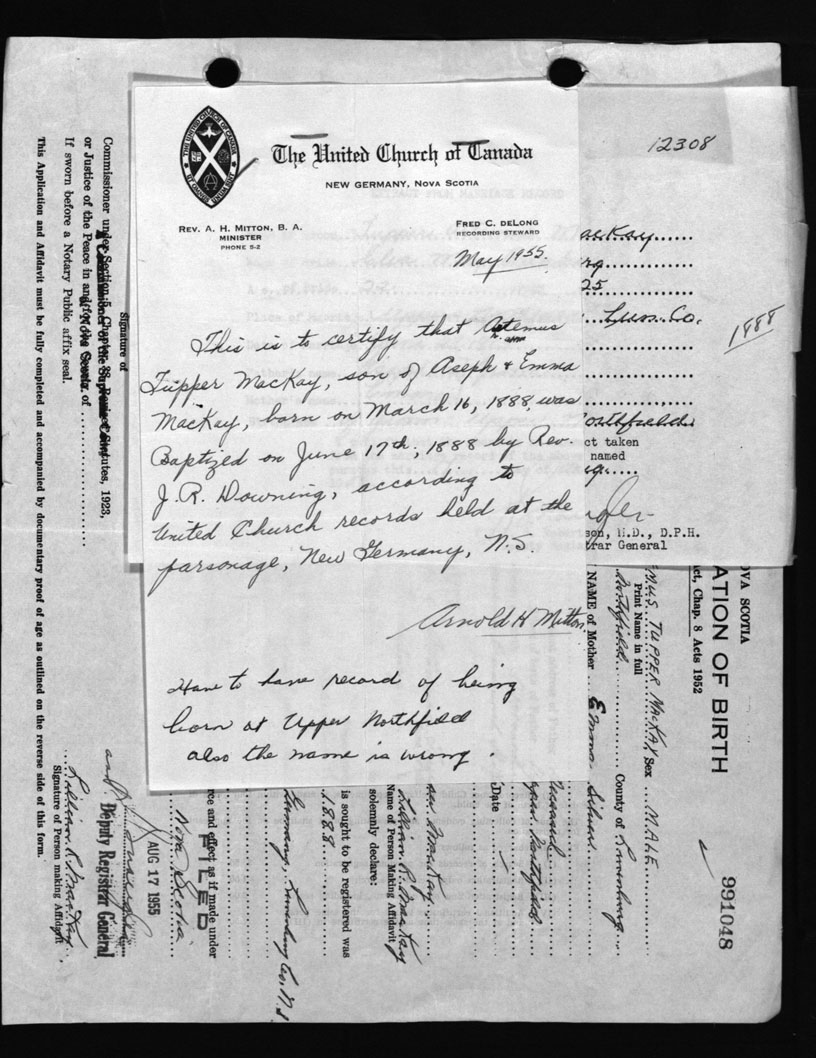 12308
The United Church of Canada
NEW GERMANY, NOVA SCOTIA
EXTRACT FROM MARRIAGE RECORD
REV. A. H. MITTON, B. A.
MINISTER
PHONE 5-2
FRED C. DELONG
RECORDING STEWARD
May 1955.
This is to certify that Artemus
Tupper MacKay, son of Aseph & Emma
MacKay, born on March 16, 1888, was
Baptized on June 17th, 1888 by Rev.
J. R. Downing, according to
United Church records held at the
parsonage, New Germany, N.S.
Arnold H Mitton.
Have to have record of being
born at Upper Northfield
also the name is wrong.
acKay
25
Lun. Co.
1888
orthfield
ct taken
named
son, M.D., D.P.H.
trar General
NOVA SCOTIA
ATION OF BIRTH
ct, Chap. 8 Acts 1952
991048
EMUS TUPPER MACKAY Sex MALE
Print Name in full
Northfield County of Lunenburg
NAME of Mother Emma Silver
Upper Northfield
Date
Lillian R. MacKay
Name of Person Making Affidavit
solemnly declare:
is sought to be registered was
1888
Germany, Lunenburg Co. N.S.
rce and effect as if made under
FILED
Nova Scotia
AUG 17 1955
Deputy Registrar General
Lillian R. MacKay
Signature of Person making Affidavit
Signature of
Commissioner under Section 5, Chapter 38, Statutes, 1923,
or Justice of the Peace in and for the County of
If sworn before a Notary Public affix seal.
This Application and Affidavit must be fully completed and accompanied by documentary proof of age as outlined on the reverse side of this form.